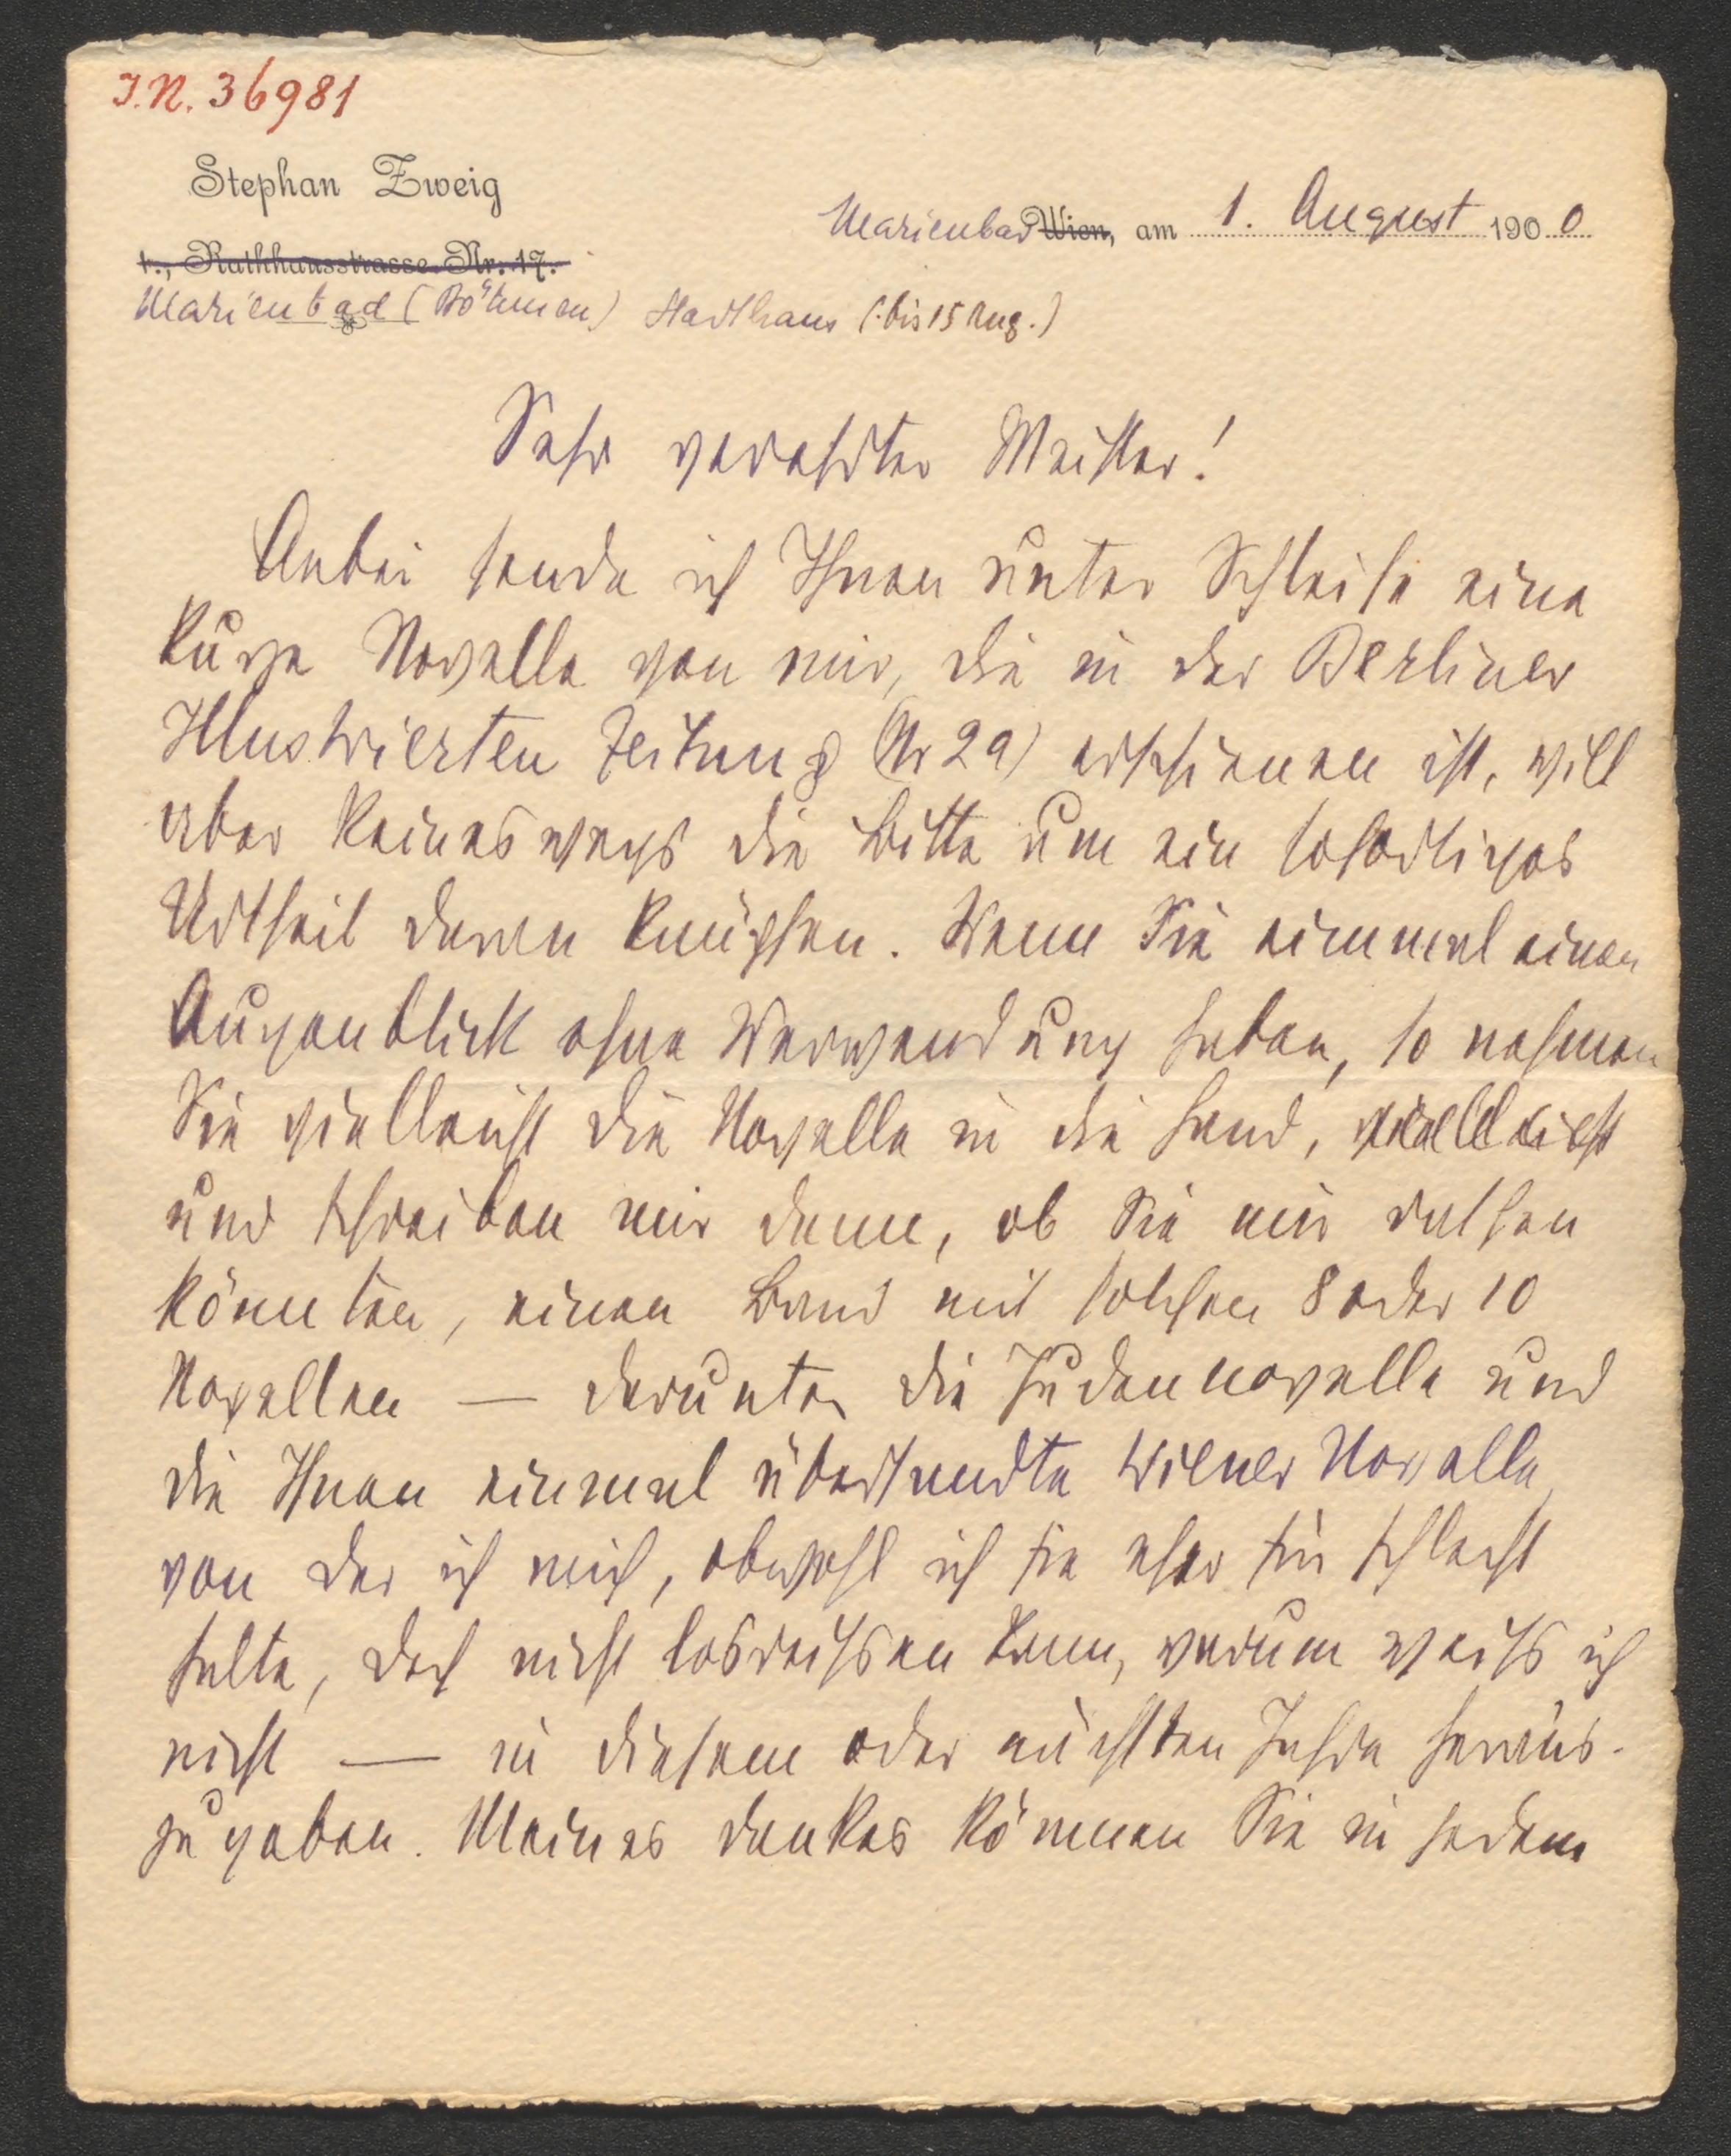 J.N. 36981
Stephan Zweig
Marienbad Wien, am 1. August 1900
I., Rathhausstrasse Nr. 17.
Marienbad (Böhmen) Stadthaus (bis 15 Aug.)
Sehr verehrter Meister!
Anbei sende ich Ihnen unter Schleife eine
kurze Novelle von mir, die in der Berliner
Illustrierten Zeitung (Nr 29) erschienen ist, will
aber keineswegs die Bitte um ein sofortiges
Urtheil daran knüpfen. Wenn Sie einmal einen
Augenblick ohne Verwendung haben, so nehmen
Sie vielleicht die Novelle in die Hand, vielleicht
und schreiben mir dann, ob Sie mir rathen
könnten, einen Band mit solchen 8 oder 10
Novellen — darunter die Judennovelle und
die Ihnen einmal übersandte Wiener Novelle,
von der ich mich, obwohl ich sie eher für schlecht
halte, doch nicht losreissen kann, warum weiss ich
nicht — in diesem oder nächsten Jahre heraus-
zugeben. Meines Dankes können Sie in jedem